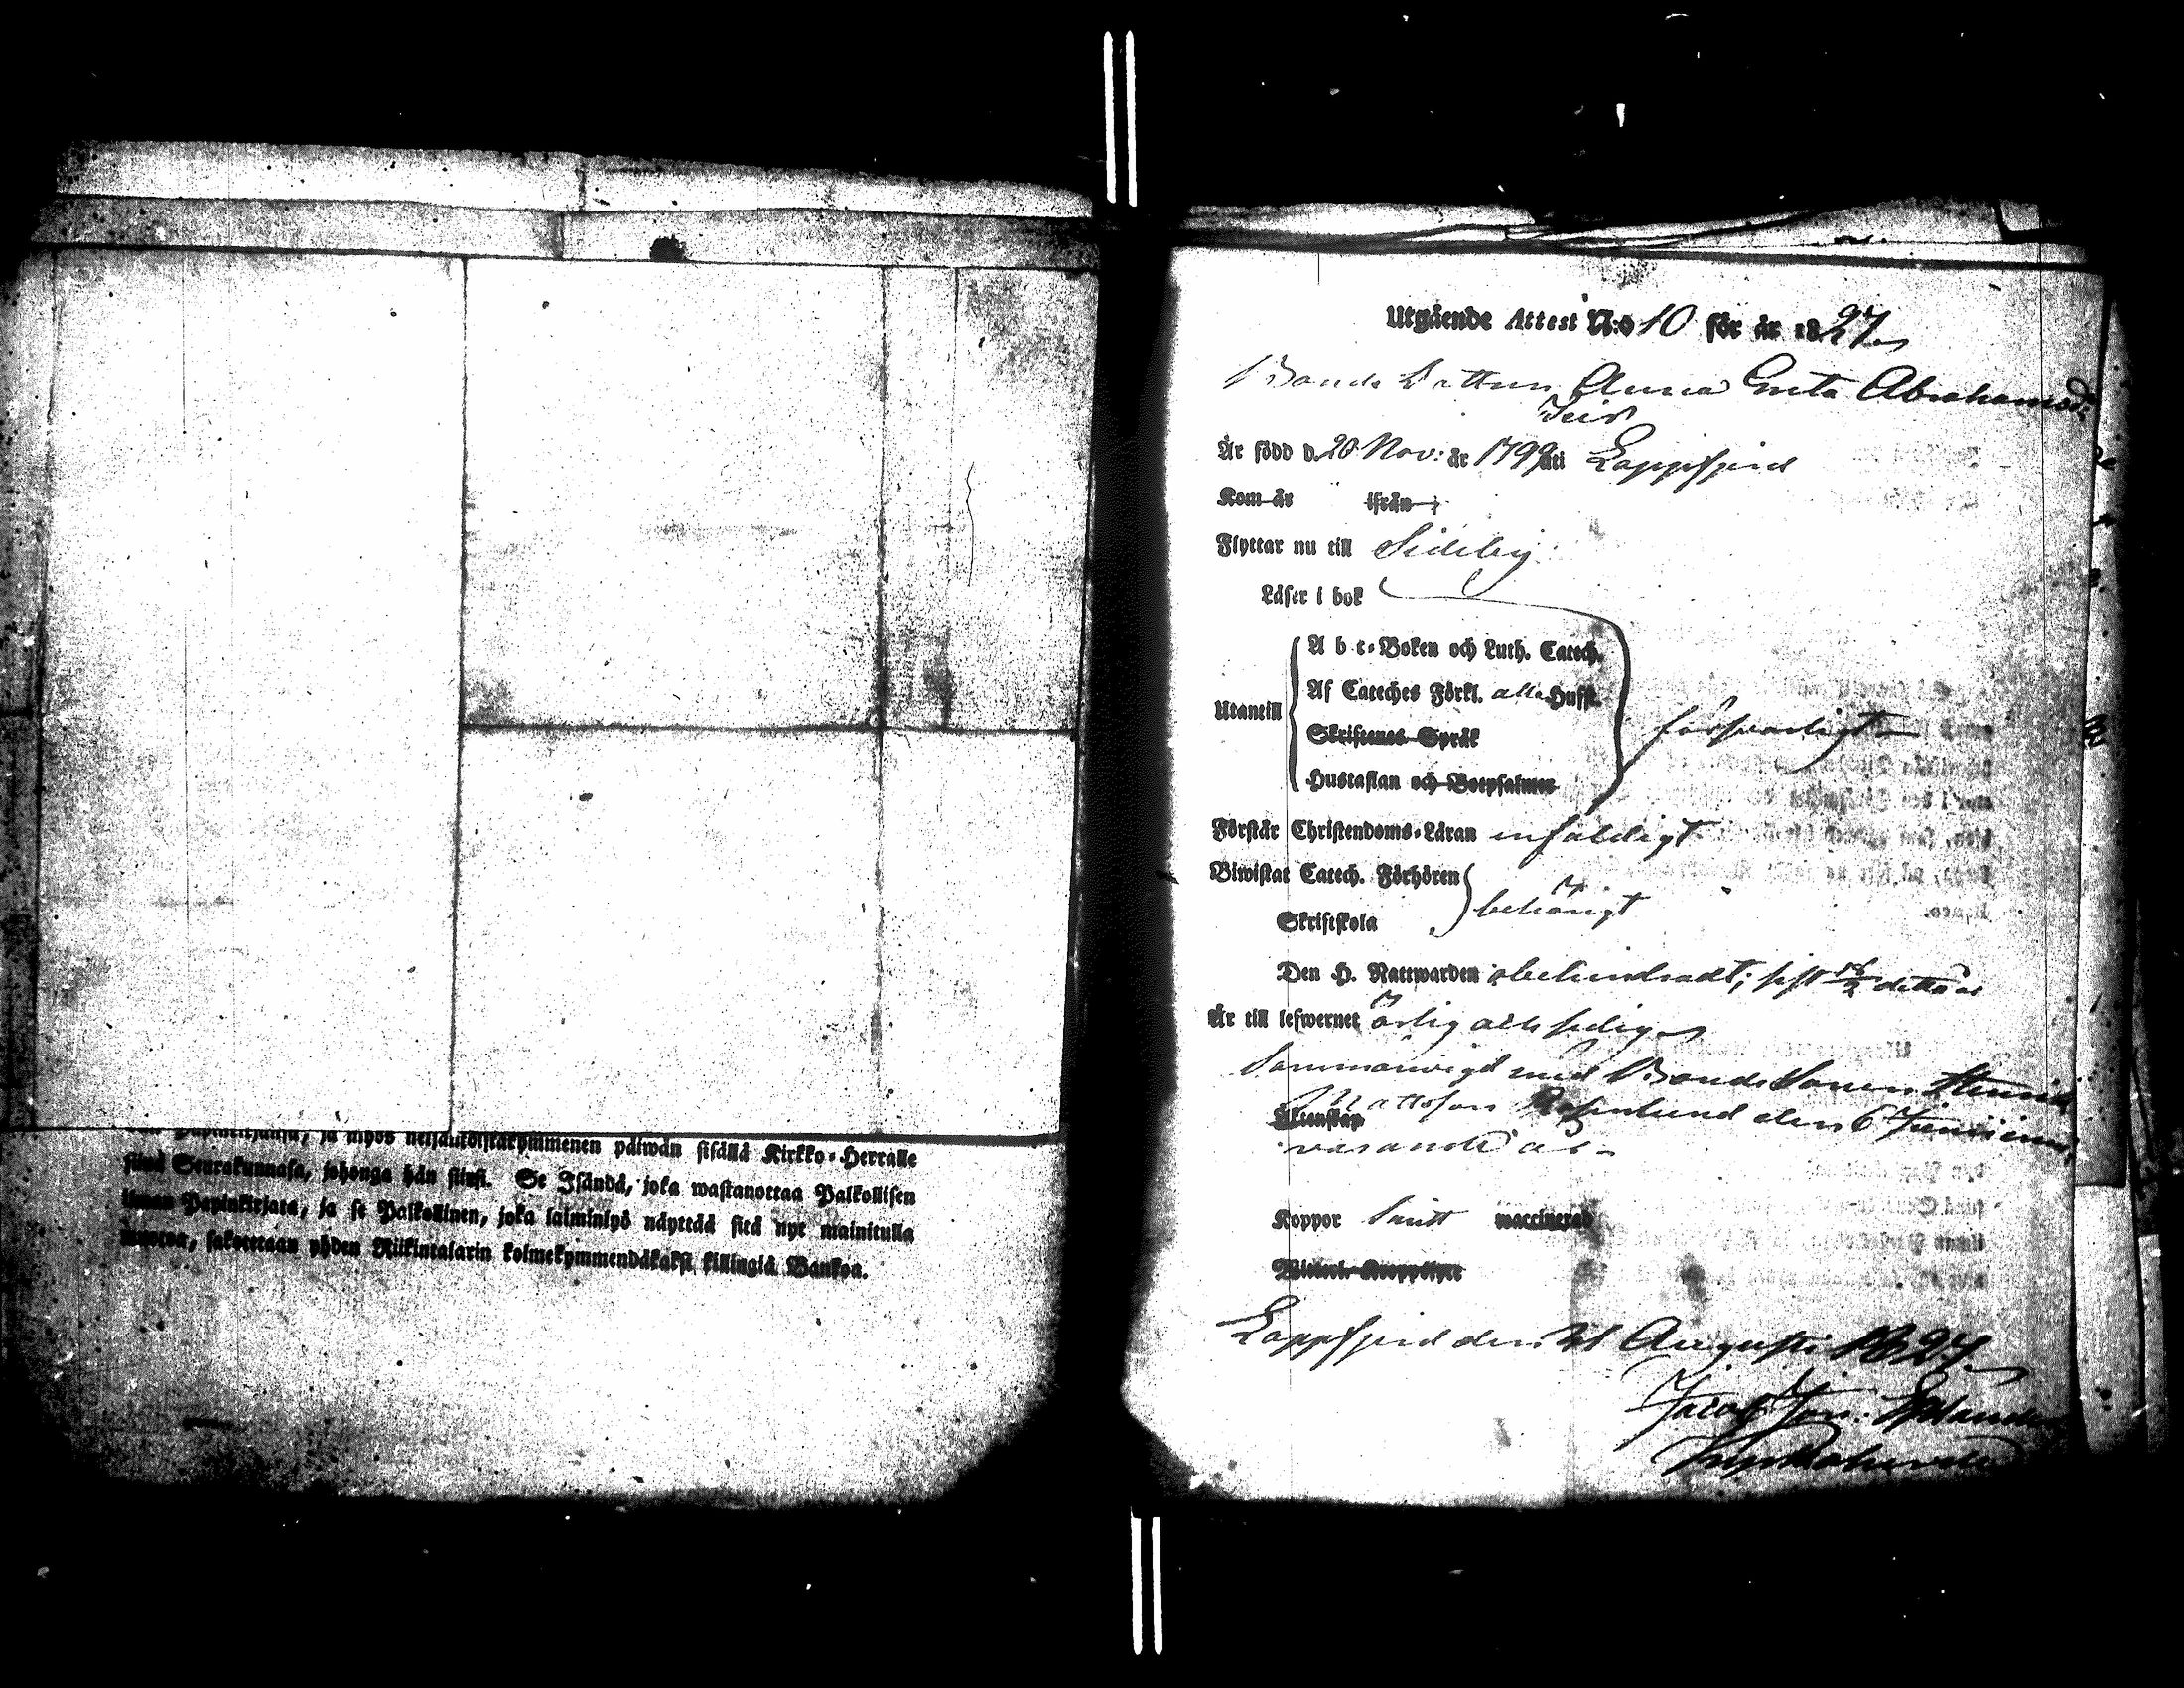 Papinkirjansa, ja myös neljäntoistakymmenen päiwän sisällä Kirkko-Herralle
siinä Seurakunnasa, johonga hän siirsi. Se Isändä, joka wastanottaa Palkollisen
ilman Papinkirjata, ja se Palkollinen, joka laiminlyö näyttää sitä nyt mainitulla
muotoa, sakotetaan yhden Riikintalarin kolmekymmendäkaksi killingiä Bankoa.
Utgående Attest N:o 10 för år 1827
Bonde Dottren Anna Greta Abrahamsd:
Är född d. 20 Nov: år 1799 uti Lappfjerd
Kom år ifrån
Flyttar nu till Sideby
Läser i bok
A b c-Boken och Luth. Catech.
Af Cateches Förkl. alla Hufst.
Utantill
Skriftenes Språk
försvarligt
Hustaflan och Botpsalmer
Förstår Christendoms-Läran enfaldigt
Biwistat Catech. Förhören
behörigt
Skriftskola
Den H. Nattwarden obehindradt; sist 18/2 detta år
Är till lefwernet ärlig och sedig
Sammanvigd med Bonde Sonen Henrik
Mattsson Rosenlund den 6 Junii inne
Äktenskap
varande år
Koppor haft vaccinerad
Lappfjerd den 21 Augusti 1827
Jacob Jon: